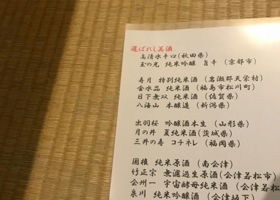 選ばれし美酒
高清水辛口(秋田県)
玉の光 純米吟醸 (京都市)
寿月 特別純米酒 (岩瀬郡天栄村)
金水晶 純米酒 (福島市松川町)
日下無双 純米酒
八海山 本醸造 (新潟県)
出羽桜 吟醸酒本生 (山形県)
月の井 夏純米酒(茨城県)
三井の寿 コチネレ (福岡県)
国権 純米原酒 (南会津)
竹正宗 無濾過生原酒(会津若松市)
会州一 宇宙酵母純米酒 (会津若松
泉川 純米吟醸 (会津